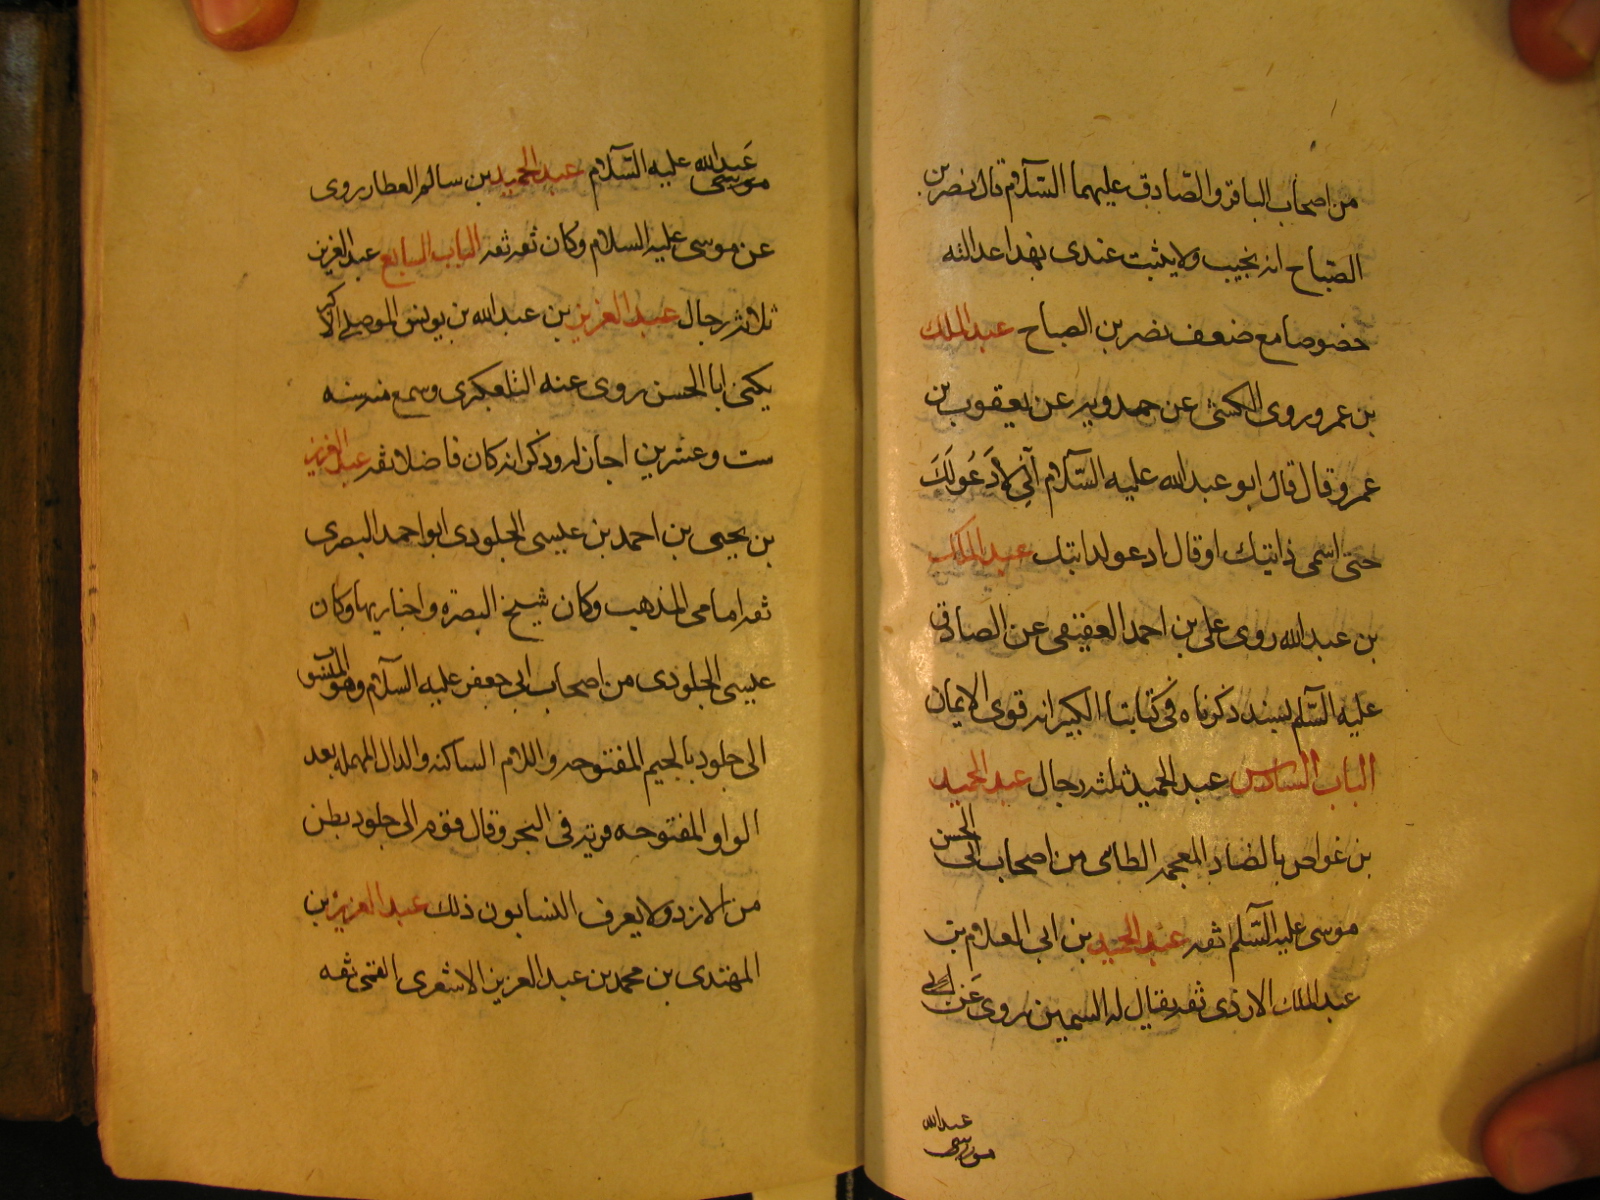 من اصحاب الباقر والصّادق عليهما السّلام قال نصر بن
الصّباح انه نجيب ولا يثبت عندى بهذا عدالته
خصوصا مع ضعف نصر بن الصباح عبد الملك
بن عمرو روى الكشى عن حمدويه عن يعقوب بن
عمرو قال قال ابو عبد الله عليه السّلام انّى لادعو لك
حتى اسمى دابتك او قال ادعو لدابتك عبد الملك
بن عبد الله روى على بن احمد العقيقى عن الصادق
عليه السّلم بسند ذكرناه فى كتابنا الكبير انه قوى الايمان
الباب السادس عبد الحميد ثلثه رجال عبد الحميد
بن غواض بالضاد المعجمه الطاى من اصحاب ابى الحسن
موسى عليه السّلم ثقه عبد الحميد بن ابى العلاء بن
عبد الملك الازدى ثقه يقال له السمين روى عن ابى
عبد الله
موسى
عبد الله عليه السّلام عبد الحميد بن سالم العطار روى
موسى
عن موسى عليه السلام وكان ثقه ثقه الباب السابع عبد العزيز
ثلاثه رجال عبد العزيز بن عبد الله بن يونس الموصلى الاكبر
يكنى ابا الحسن روى عنه التلعكبرى وسمع منه سنه
ست وعشرين اجاز له وذكر انه كان فاضلا ثقه عبد العزيز
بن يحيى بن احمد بن عيسى الجلودى ابو احمد البصرى
ثقه امامى المذهب وكان شيخ البصره واخباريها وكان
عيسى الجلودى من اصحاب ابى جعفر عليه السّلام وهو المنسوب
الى جلود بالجيم المفتوحه واللام الساكنه والدال المهمله بعد
الواو المفتوحه قريه فى البحر وقال قوم الى جلود بطن
من الازد ولا يعرف النسابون ذلك عبد العزيز بن
المهتدى بن محمد بن عبد العزيز الاشعرى القمى ثقه